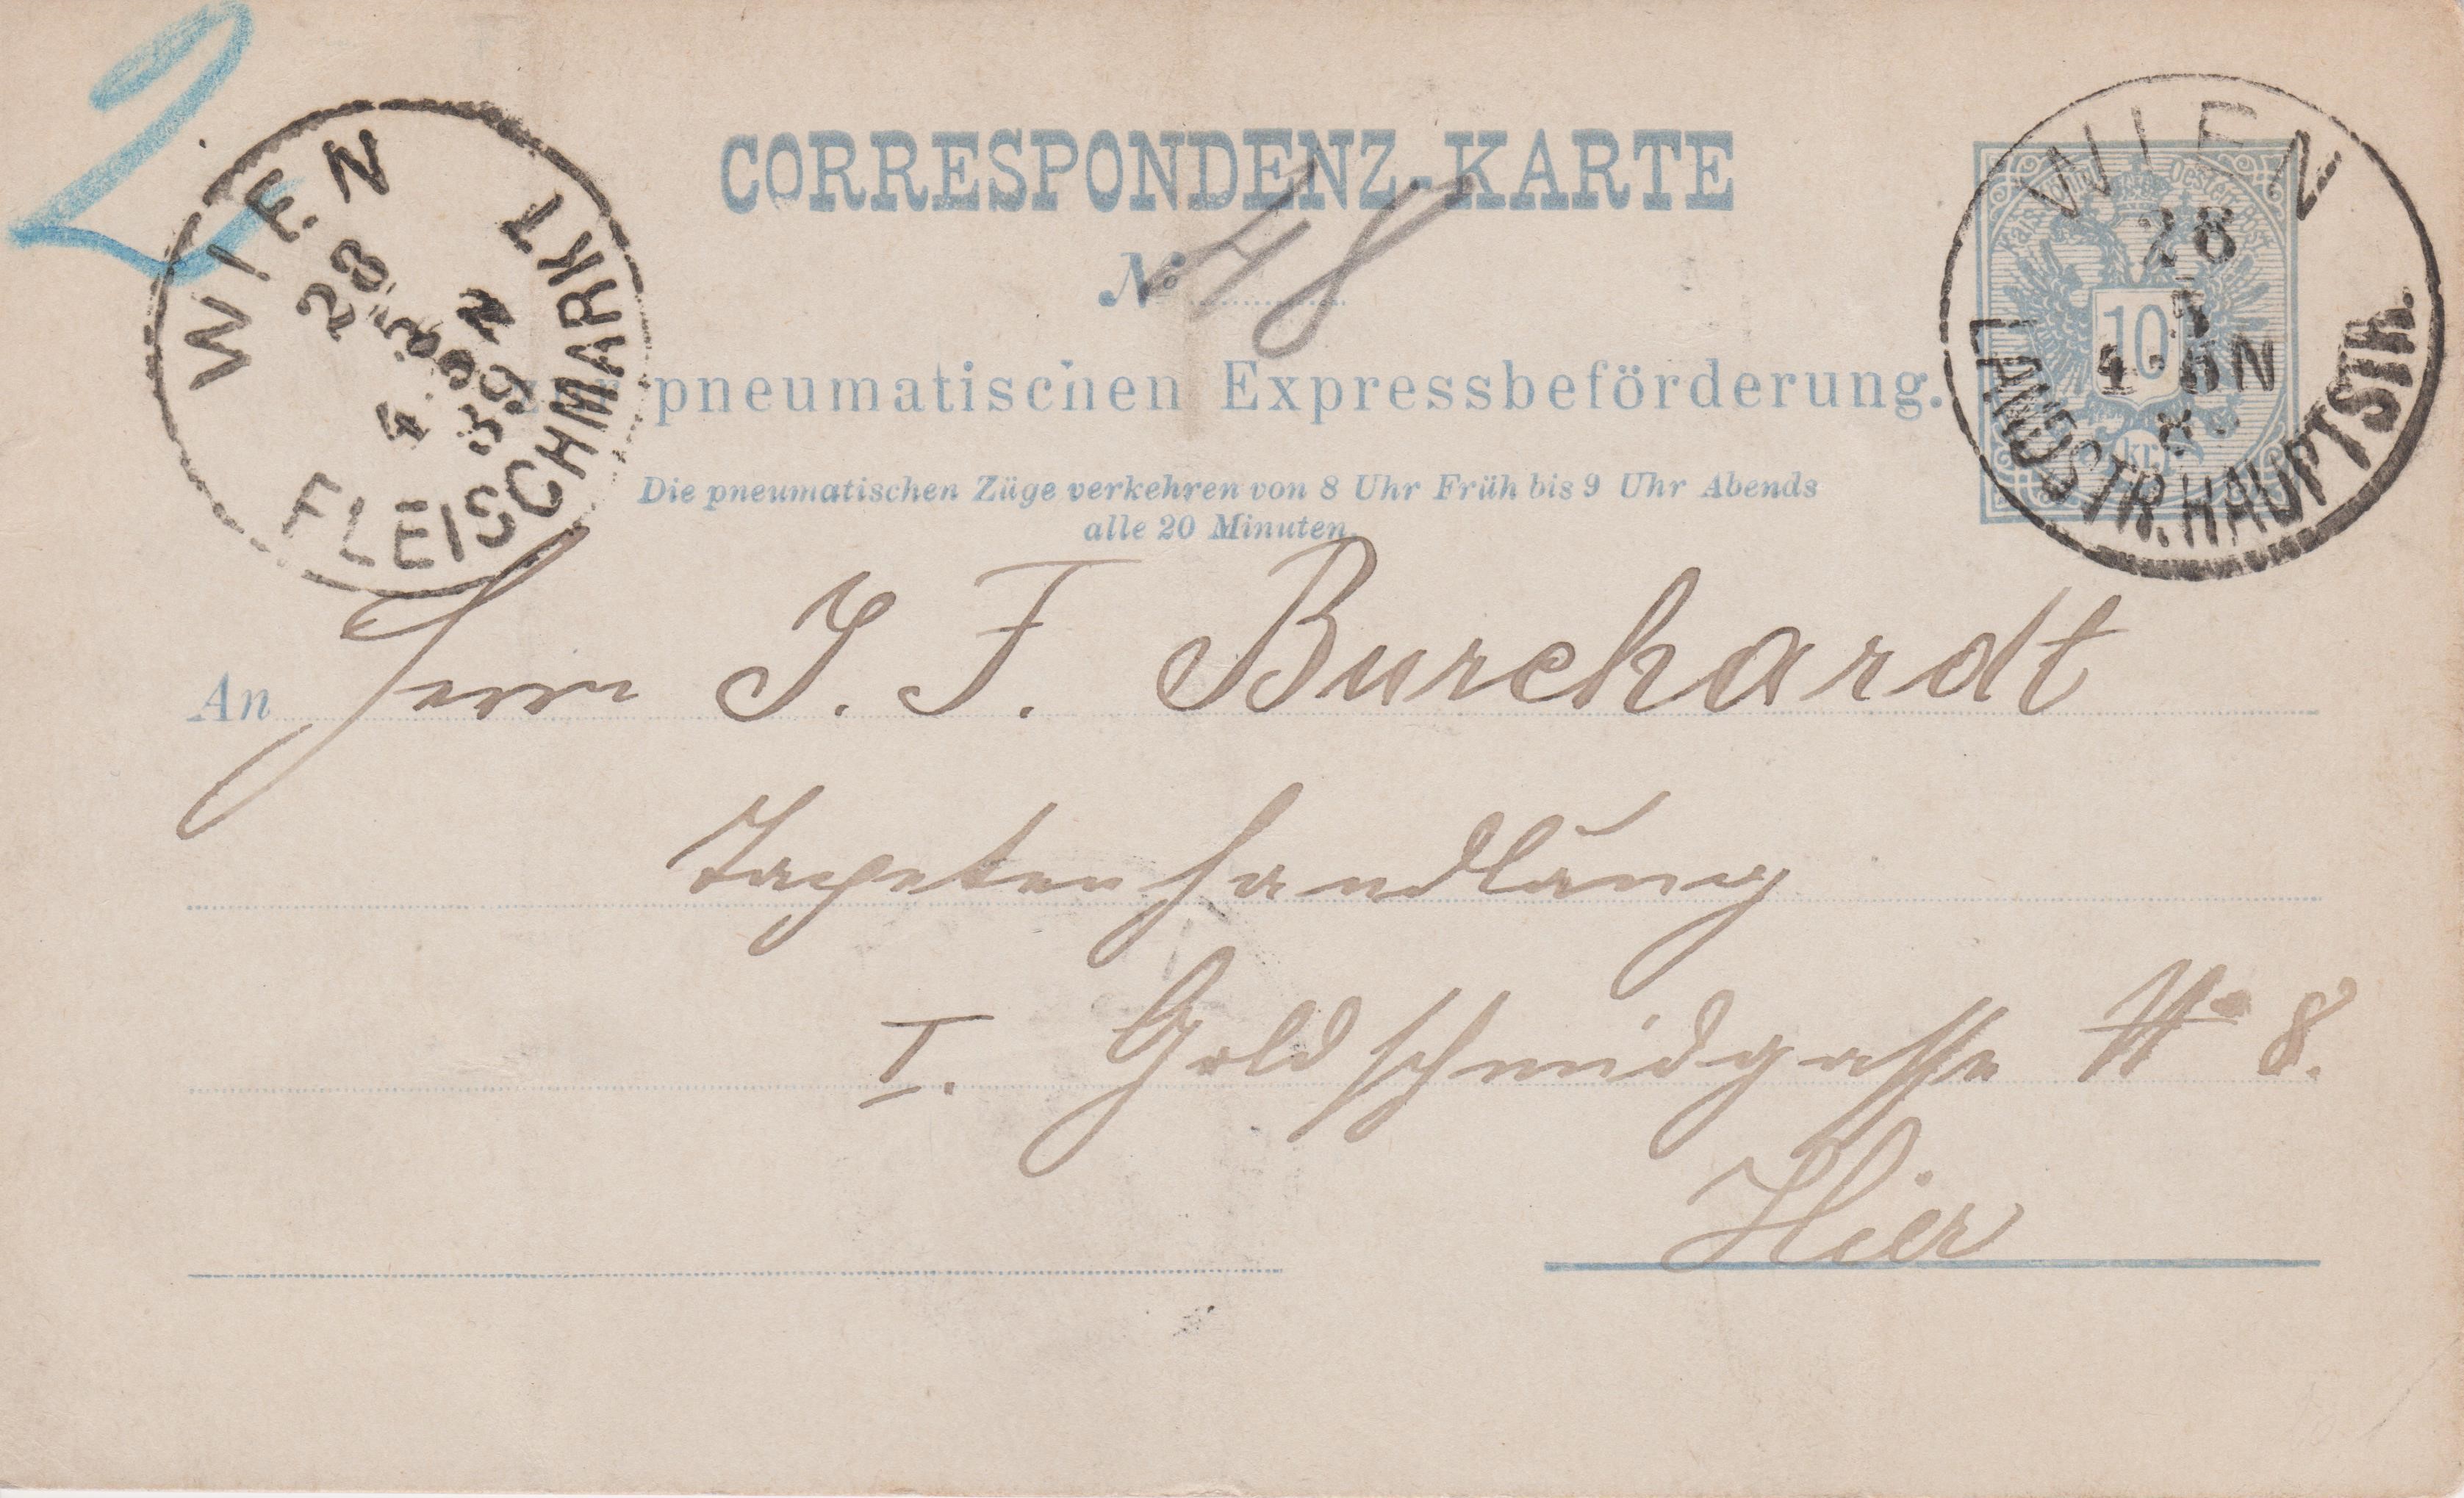 2
WIEN
28
5
4·30N
FLEISCHMARKT
CORRESPONDENZ-KARTE
No 48
pneumatischen Expressbeförderung.
Die pneumatischen Züge verkehren von 8 Uhr Früh bis 9 Uhr Abends
alle 20 Minuten.
WIEN
28
5
10
kr.
LANDSTR.HAUPTSTR.
An Herrn J. F. Burchardt
Tapetenhandlung
I. Goldschmidgasse No 8.
Hier